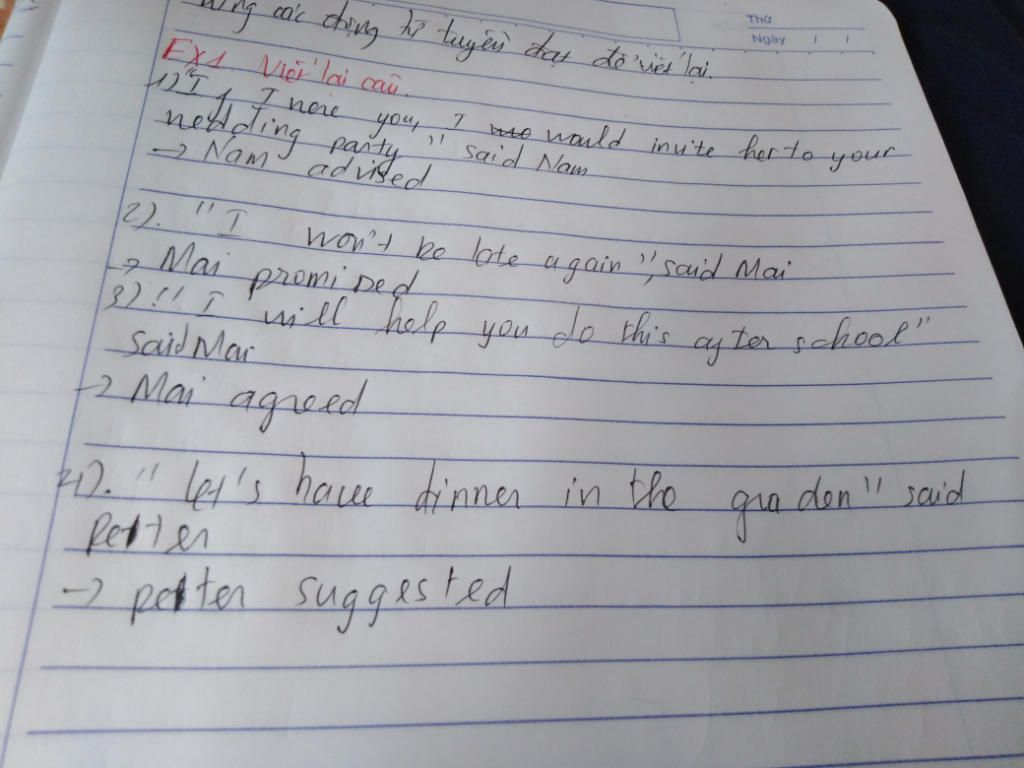 các động từ tuyền đạt để viết lại.
Thứ
Ngày / /
Ex1. Viết lại câu.
1) "I were you, I would invite her to your
wedding party" said Nam
→ Nam advised
2). "I won't be late again", said Mai
→ Mai promised
3) "I will help you do this after school"
said Mai
→ Mai agreed
4). "Let's have dinner in the graden" said
petter
→ petter suggested